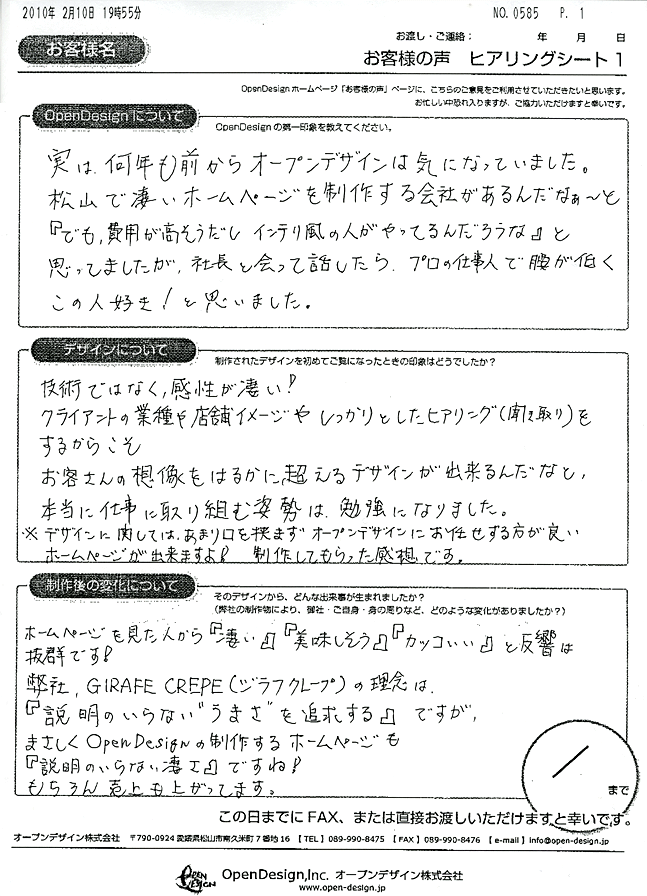 2010年 2月10日 19時55分 NO.0585 P. 1
お渡し・ご連絡： 年 月 日
お客様名
お客様の声 ヒアリングシート1
OpenDesignホームページ「お客様の声」ページに、こちらのご意見をご利用させていただきたいと思います。
お忙しい中恐れ入りますが、ご協力いただけますと幸いです。
OpenDesignについて
OpenDesignの第一印象を教えてください。
実は、何年も前からオープンデザインは気になっていました。
松山で凄いホームページを制作する会社があるんだなぁ〜と
『でも,費用が高そうだし インテリ風の人がやってるんだろうな』と
思ってましたが、社長と会って話したら、プロの仕事人で腰が低く
この人好き!と思いました。
デザインについて
制作されたデザインを初めてご覧になったときの印象はどうでしたか?
技術ではなく,感性が凄い!
クライアントの業種や店舗イメージや しっかりとしたヒアリング(聞き取り)を
するからこそ
お客さんの想像をはるかに超えるデザインが出来るんだなと,
本当に仕事に取り組む姿勢は、勉強になりました。
※ デザインに関しては、あまり口を挟まず オープンデザインにお任せする方が良い
ホームページが出来ますよ! 制作してもらった感想です。
制作後の変化について
そのデザインから、どんな出来事が生まれましたか?
(弊社の制作物により、御社・ご自身・身の周りなど、どのような変化がありましたか?)
ホームページを見た人から『凄い』『美味しそう』『カッコいい』と反響は
抜群です!
弊社,GIRAFE CREPE(ジラフクレープ)の理念は、
『説明のいらない"うまさ"を追求する』ですが,
まさしくOpenDesignの制作するホームページも
『説明のいらない凄さ』ですね!
もちろん売上も上がってます。
/
まで
この日までにFAX、または直接お渡しいただけますと幸いです。
オープンデザイン株式会社 〒790-0924 愛媛県松山市南久米町7番地16 【TEL】089-990-8475 【FAX】089-990-8476 【e-mail】info@open-design.jp
OPEN DESIGN OpenDesign,Inc. オープンデザイン株式会社
www.open-design.jp